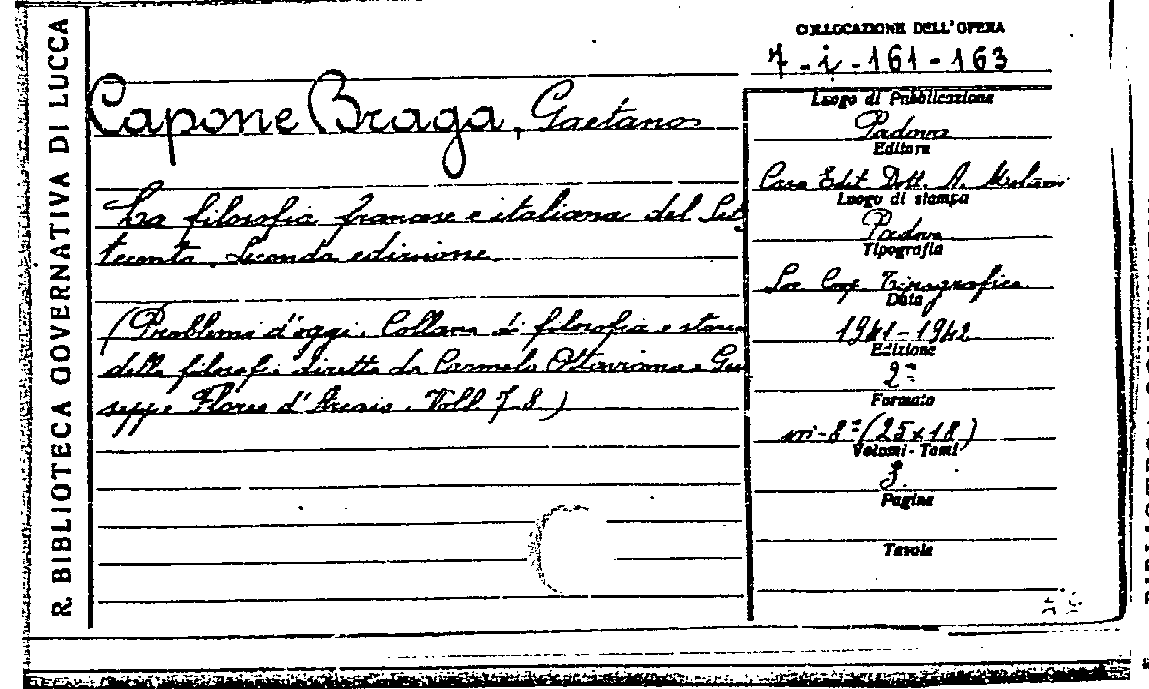 R. BIBLIOTECA GOVERNATIVA DI LUCCA
COLLOCAZIONE DELL'OPERA
7-i-161-163
Capone Braga, Gaetano
La filosofia francese e italiana del Set
tecento. Seconda edizione.
(Problemi d'oggi. Collana di filosofia e storia
della filosofia diretta da Carmelo Ottaviano e Giu
seppe Flores d'Arcais. Voll. 7-8.)
Luogo di Pubblicazione
Padova
Editore
Casa Edit. Dott. A. Milani
Luogo di stampa
Padova
Tipografia
Soc. Coop. Tipografica
Data
1941-1942
Edizione
2ª
Formato
in-8° (25x18)
Volumi - Tomi
3.
Pagine
Tavole